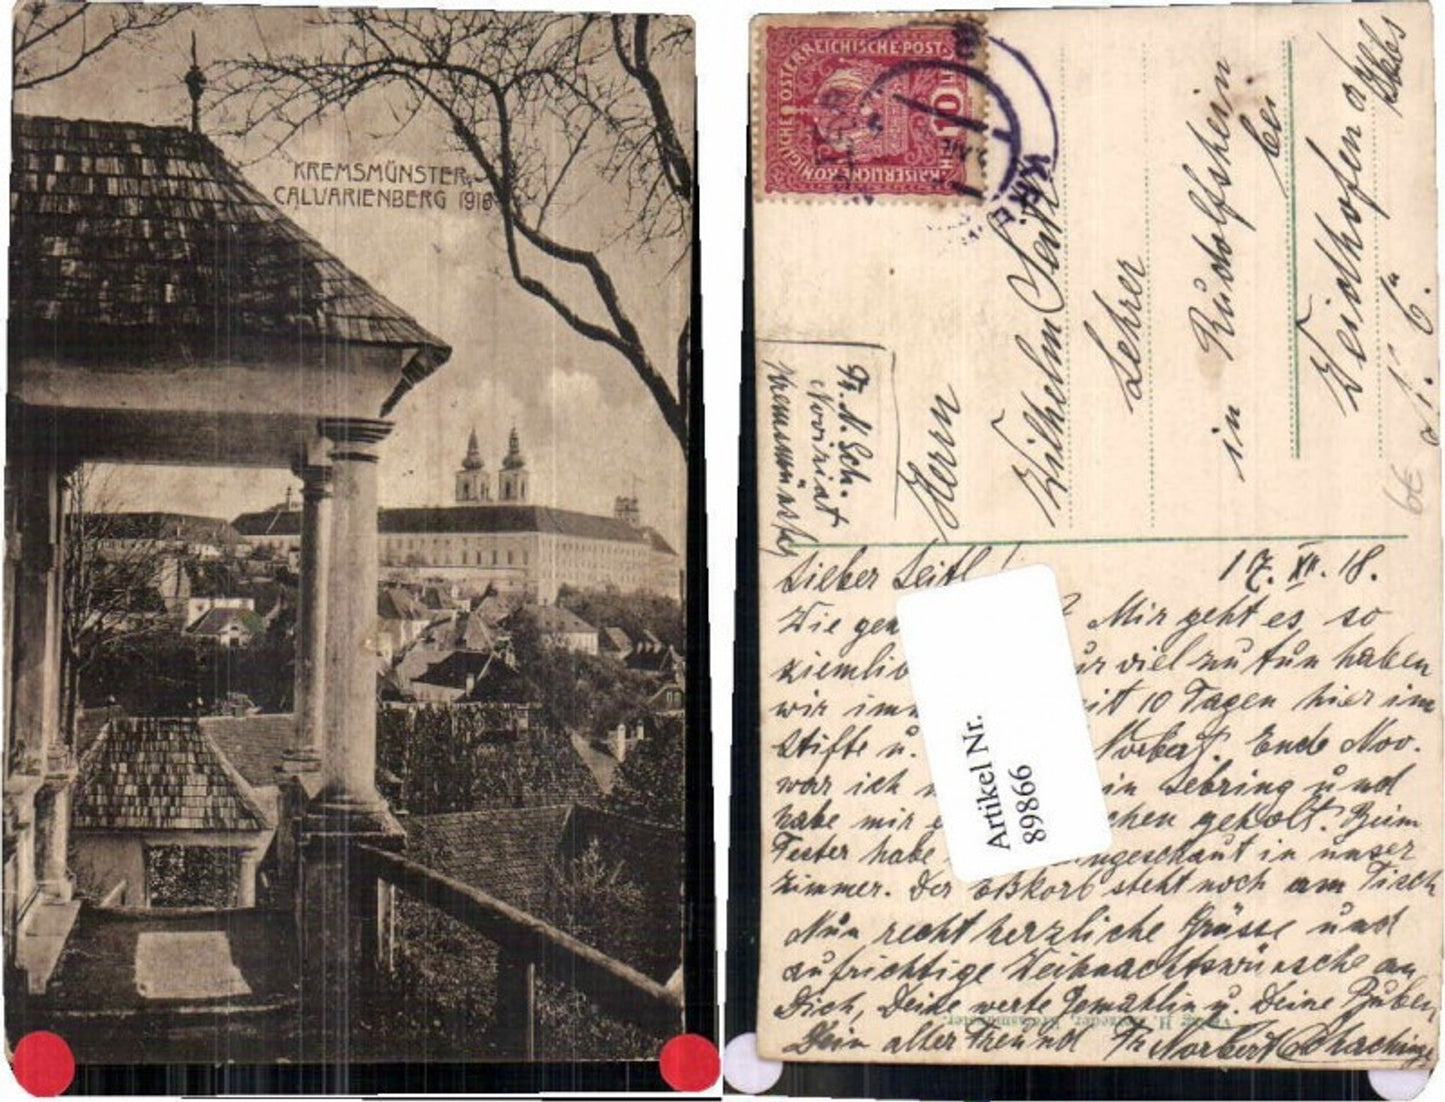 KREMSMÜNSTER
CALVARIENBERG 1916
KAISERLICHE KÖNIGLICHE ÖSTERREICHISCHE POST
10
Kremsmünster
Herrn
Wilhelm Seitl
Lehrer
in Rudolfsheim
bei
Weidhofen a/
Ybbs
N. Ö.
6€
Lieber Seitl! 17. XII. 18.
Wie geh ? Mir geht es so
ziemlich viel zu tun haben
wir im seit 10 Tagen hier im
Stifte u. Norbert. Ende Nov.
war ich in Sebring und
habe mir chen geholt. Beim
Fester habe ngeschaut in unser
Zimmer. Der Eßkorb steht noch am Tisch
Nun recht herzliche Grüsse und
aufrichtige Weihnachtswünsche an
Dich, Deine werte Gemahlin u. Deine Buben
Dein alter Freund Fr Norbert Schachinger
Artikel Nr.
89866
Verlag H. Kremsmünster.